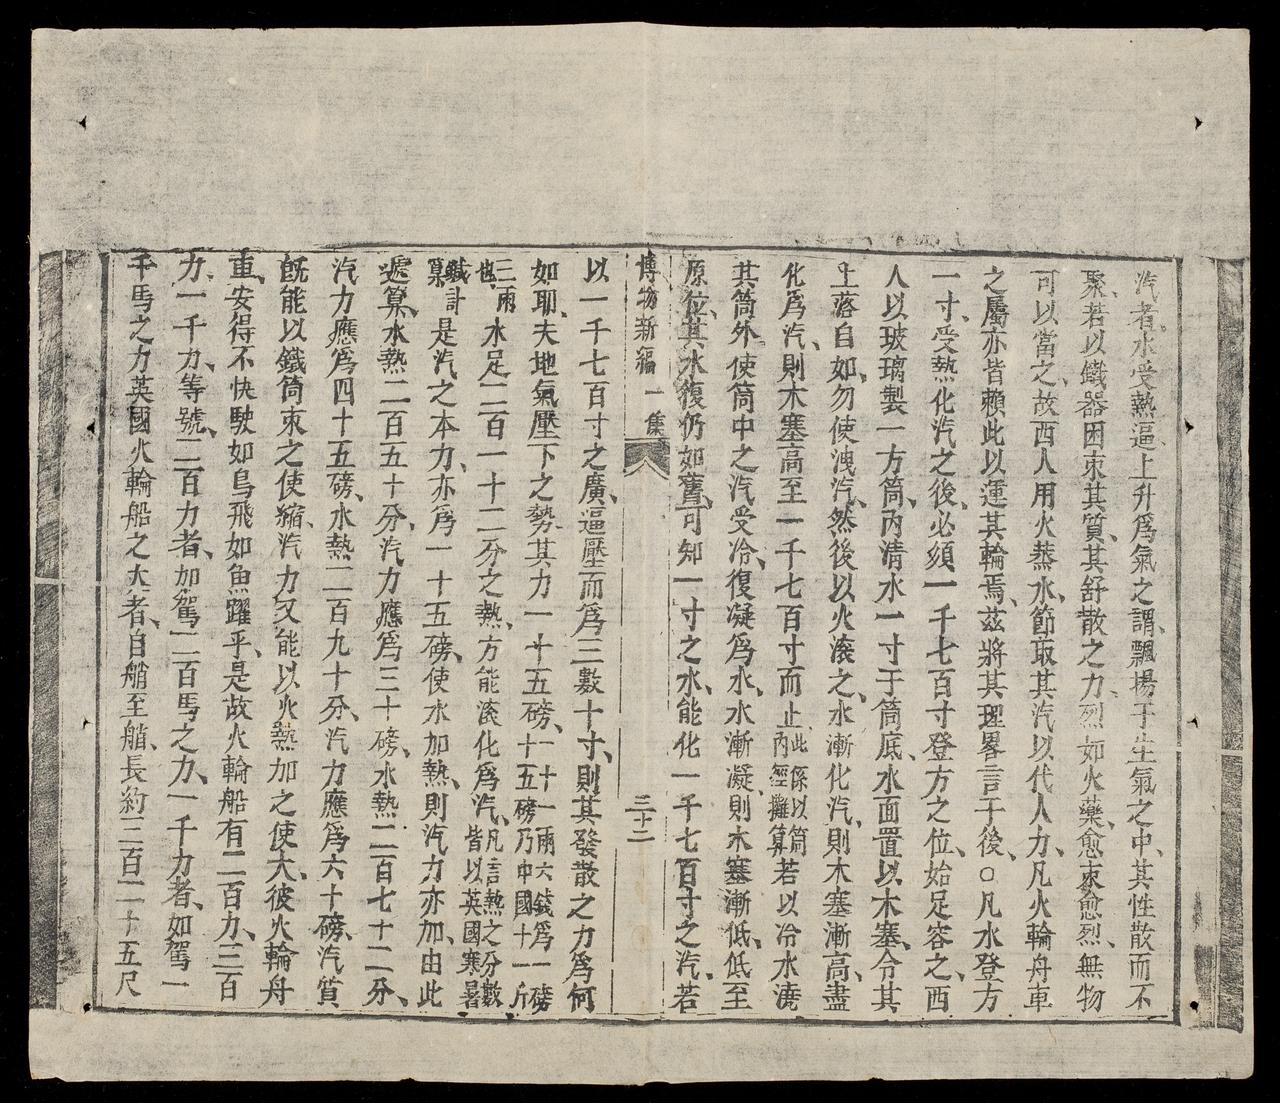 汽者、水受熱逼上升爲氣之謂、飄揚于生氣之中、其性散而不
聚、若以鐵器困束其質、其舒散之力、烈如火藥、愈束愈烈、無物
可以當之、故西人用火蒸水、節取其汽以代人力、凡火輪舟車
之屬亦皆賴此以運其輪焉、茲將其理畧言于後、○凡水登方
一寸、受熱化汽之後、必須一千七百寸登方之位、始足容之、西
人以玻璃製一方筒、內清水一寸于筒底、水面置以木塞、令其
上落自如、勿使洩汽、然後以火滚之、水漸化汽、則木塞漸高、盡
化爲汽、則木塞高至一千七百寸而止此係以筒內經攤算若以冷水澆
其筒外使筒中之汽受冷、復凝爲水、水漸凝、則木塞漸低、低至
原位、其水復仍如舊、可知一寸之水、能化一千七百寸之汽、若
博物新編 一集 三十二
以一千七百寸之廣、逼壓而爲三數十寸、則其發散之力爲何
如耶、夫地氣壓下之勢、其力一十五磅、一十一兩六錢爲一磅十五磅乃中國十一斤
三兩也、水足二百一十二分之熱、方能滚化爲汽、凡言熱之分數皆以英國寒暑
鍼計算是汽之本力、亦爲一十五磅、使水加熱、則汽力亦加、由此
遞算、水熱二百五十分、汽力應爲三十磅、水熱二百七十二分、
汽力應爲四十五磅、水熱二百九十分、汽力應爲六十磅、汽質
旣能以鐵筒束之使縮、汽力又能以火熱加之使大、彼火輪舟
車、安得不快駛如鳥飛如魚躍乎、是故火輪船有二百力、三百
力、一千力、等號、二百力者、如駕二百馬之力、一千力者、如駕一
千馬之力、英國火輪船之大者、自艄至艏、長約三百二十五尺